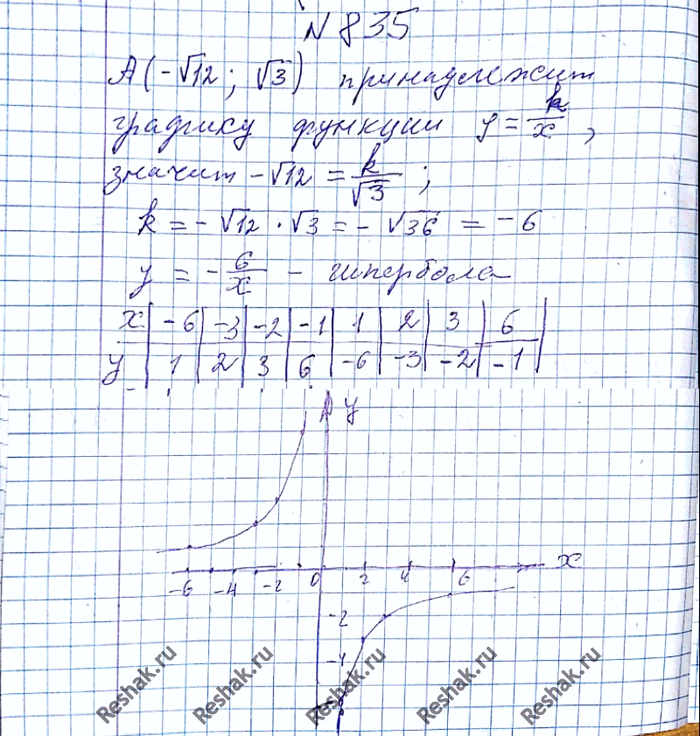 N 835
A(-√12; √3) принадлежит
графику функции y = k/x,
значит -√12 = k/√3;
k = -√12 · √3 = -√36 = -6
y = -6/x - гипербола
x | -6 | -3 | -2 | -1 | 1 | 2 | 3 | 6
y | 1 | 2 | 3 | 6 | -6 | -3 | -2 | -1
y
-6 -4 -2 0 2 4 6 x
-2
-4
Reshak.ru Reshak.ru Reshak.ru Reshak.ru Reshak.ru